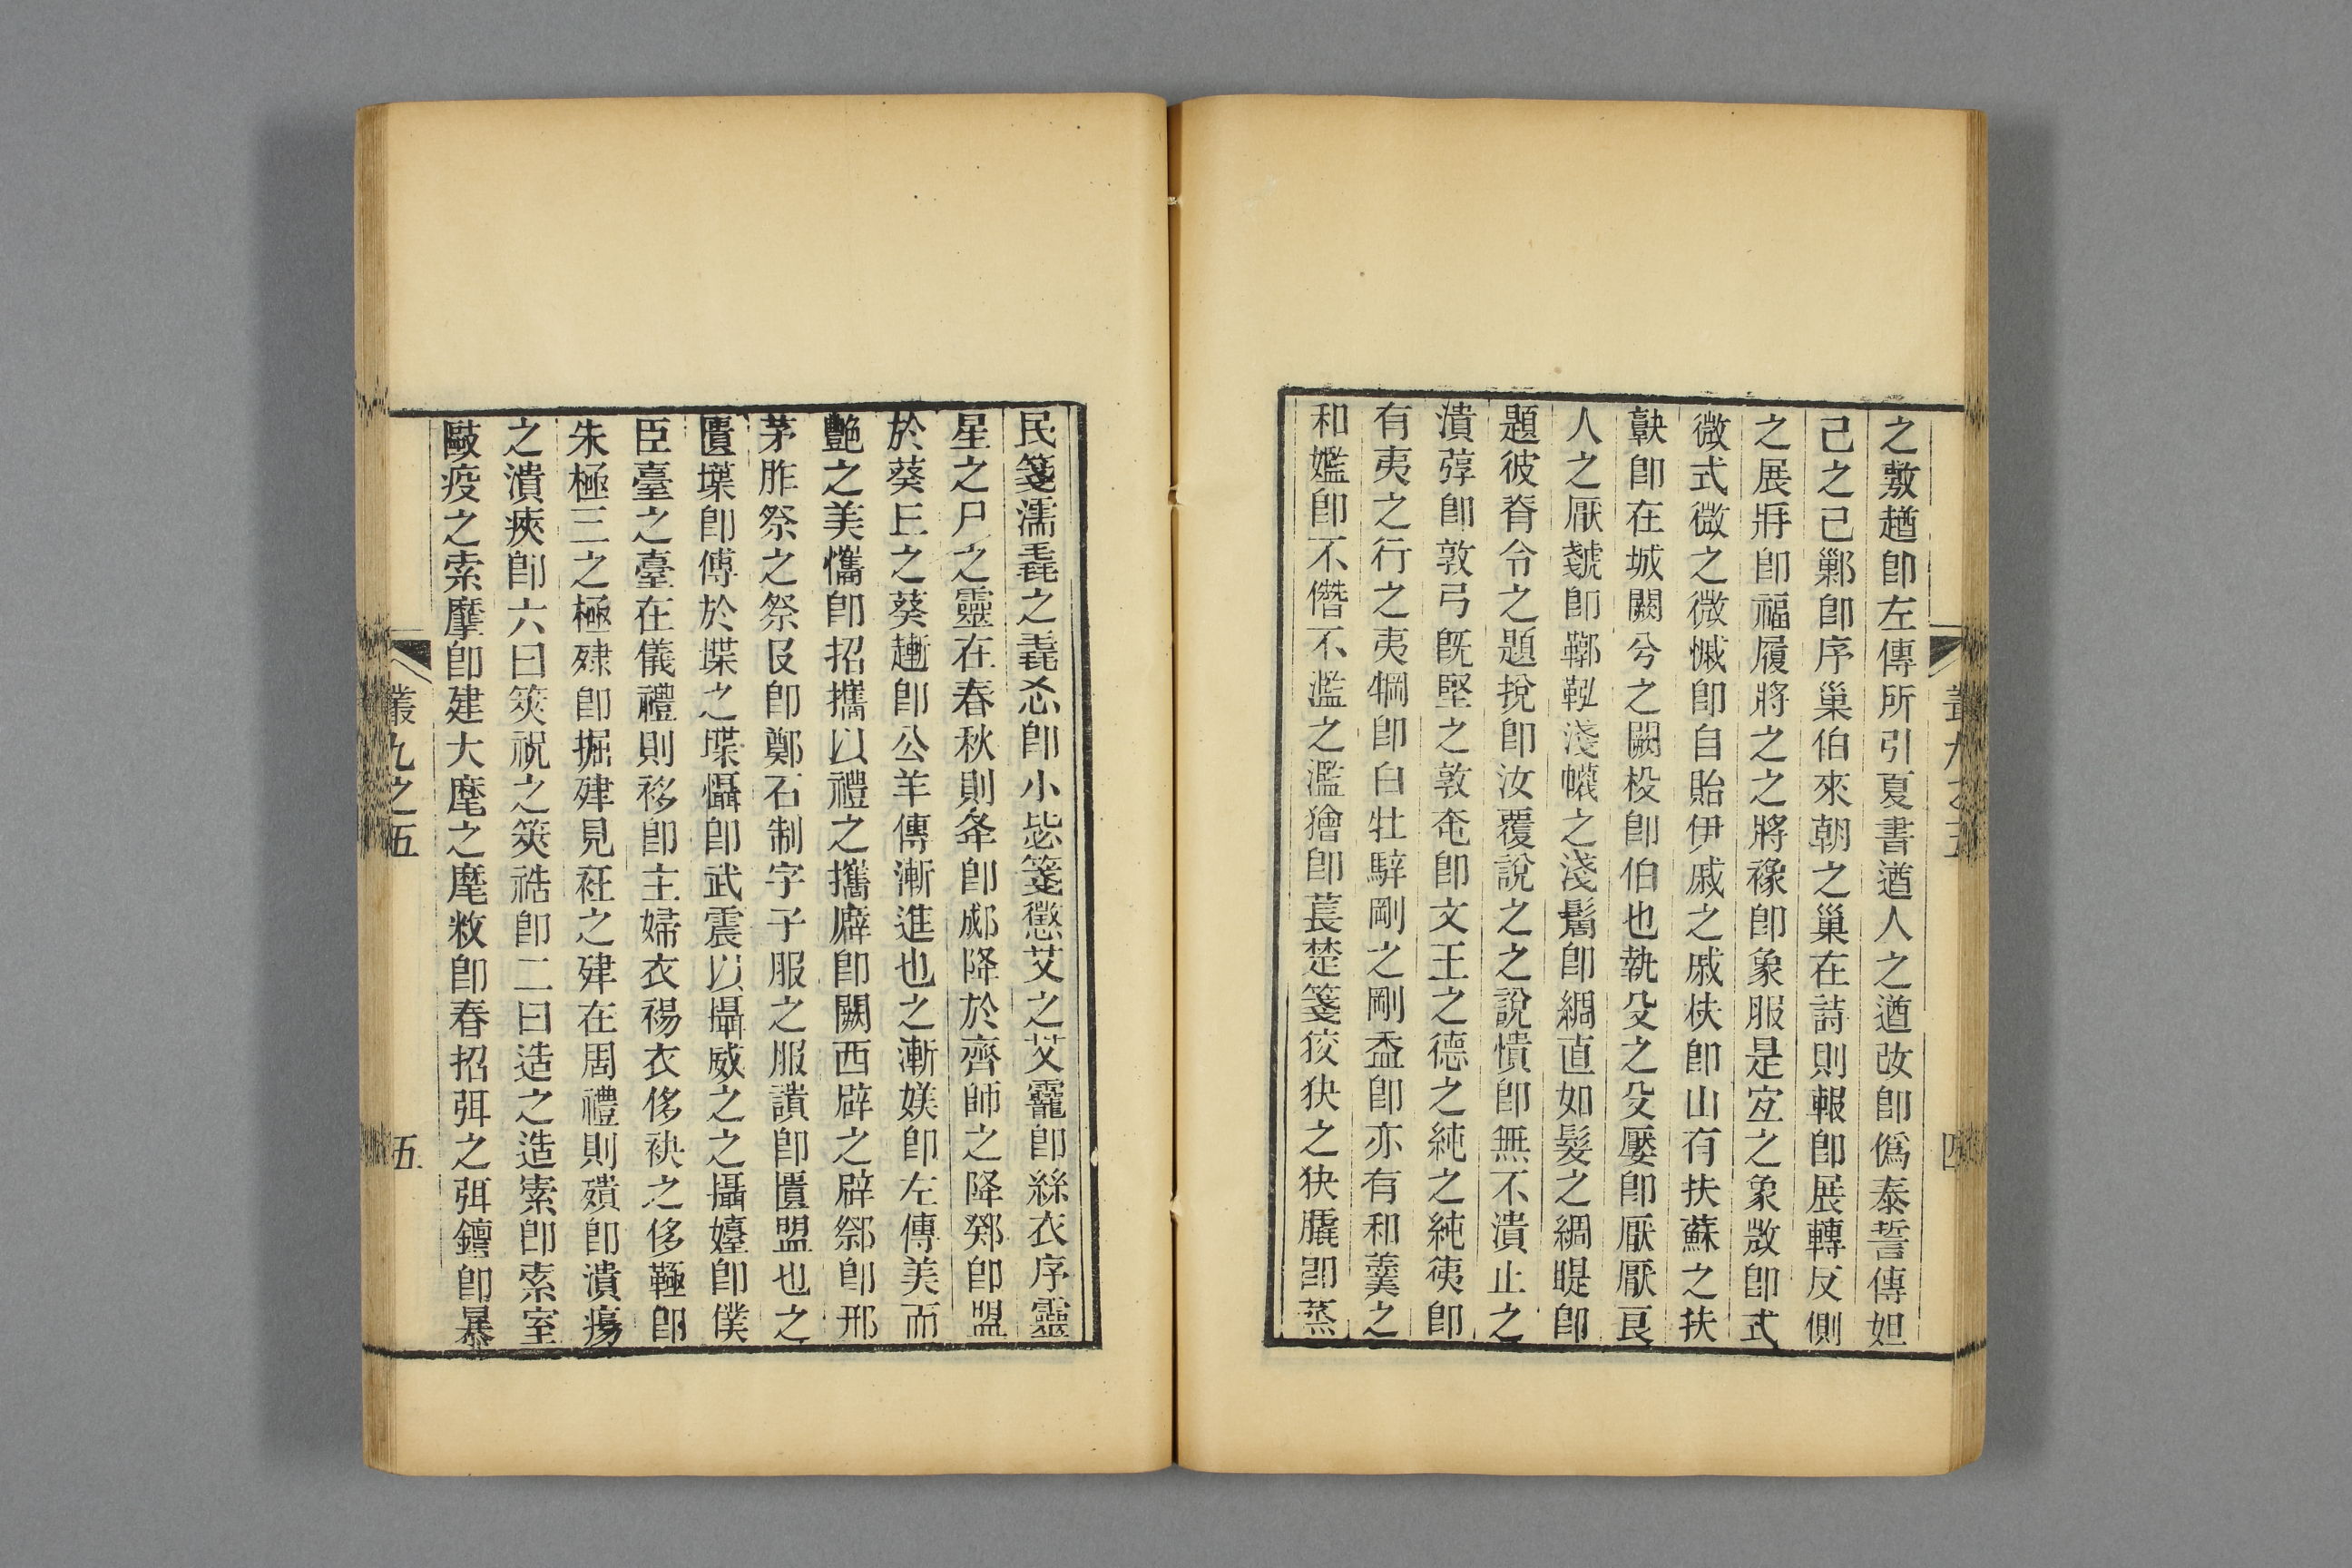 之敹趥卽左傳所引夏書遒人之遒攺卽僞泰誓傳妲
己之己鄛卽序巢伯來朝之巢在詩則報卽展轉反側
之展牂卽福履將之之將襐卽象服是宜之象敳卽式
微式微之微慽卽自貽伊戚之戚枎卽山有扶蘇之扶
缺卽在城闕兮之闕杸卽伯也執殳之殳懕卽厭厭良
人之厭虦卽鞹鞃淺幭之淺鬜卽綢直如髮之綢睼卽
題彼脊令之題挩卽汝覆說之之說憒卽無不潰止之
潰弴卽敦弓旣堅之敦奄卽文王之德之純之純徚卽
有夷之行之夷犅卽白牡騂剛之剛盉卽亦有和羹之
和㜮卽不僭不濫之濫獪卽萇楚箋狡狭之狭𦞠卽蒸
民箋濡毳之毳忩卽小毖箋懲艾之艾龗卽絲衣序靈
星之尸之靈在春秋則夅卽郕降於齊師之降鄈卽盟
於葵丘之葵趰卽公羊傳漸進也之漸媄卽左傳美而
豔之美㦎卽招攜以禮之攜廦卽闕西辟之辟鄒卽邢
茅胙祭之祭𠬝卽鄭石制字子服之服讃卽匱盟也之
匱㙪卽傅於堞之堞懾卽武震以攝威之之攝嬯卽僕
臣臺之臺在儀禮則袳卽主婦衣裼衣侈袂之侈𩋧卽
朱極三之極殔卽掘肂見衽之肂在周禮則殨卽潰瘍
之潰㾜卽六曰筴祝之筴祰卽二曰造之造㩡卽索室
敺疫之索摩卽建大麾之麾敉卽春招弭之弭䥛卽暴
叢九之五
五